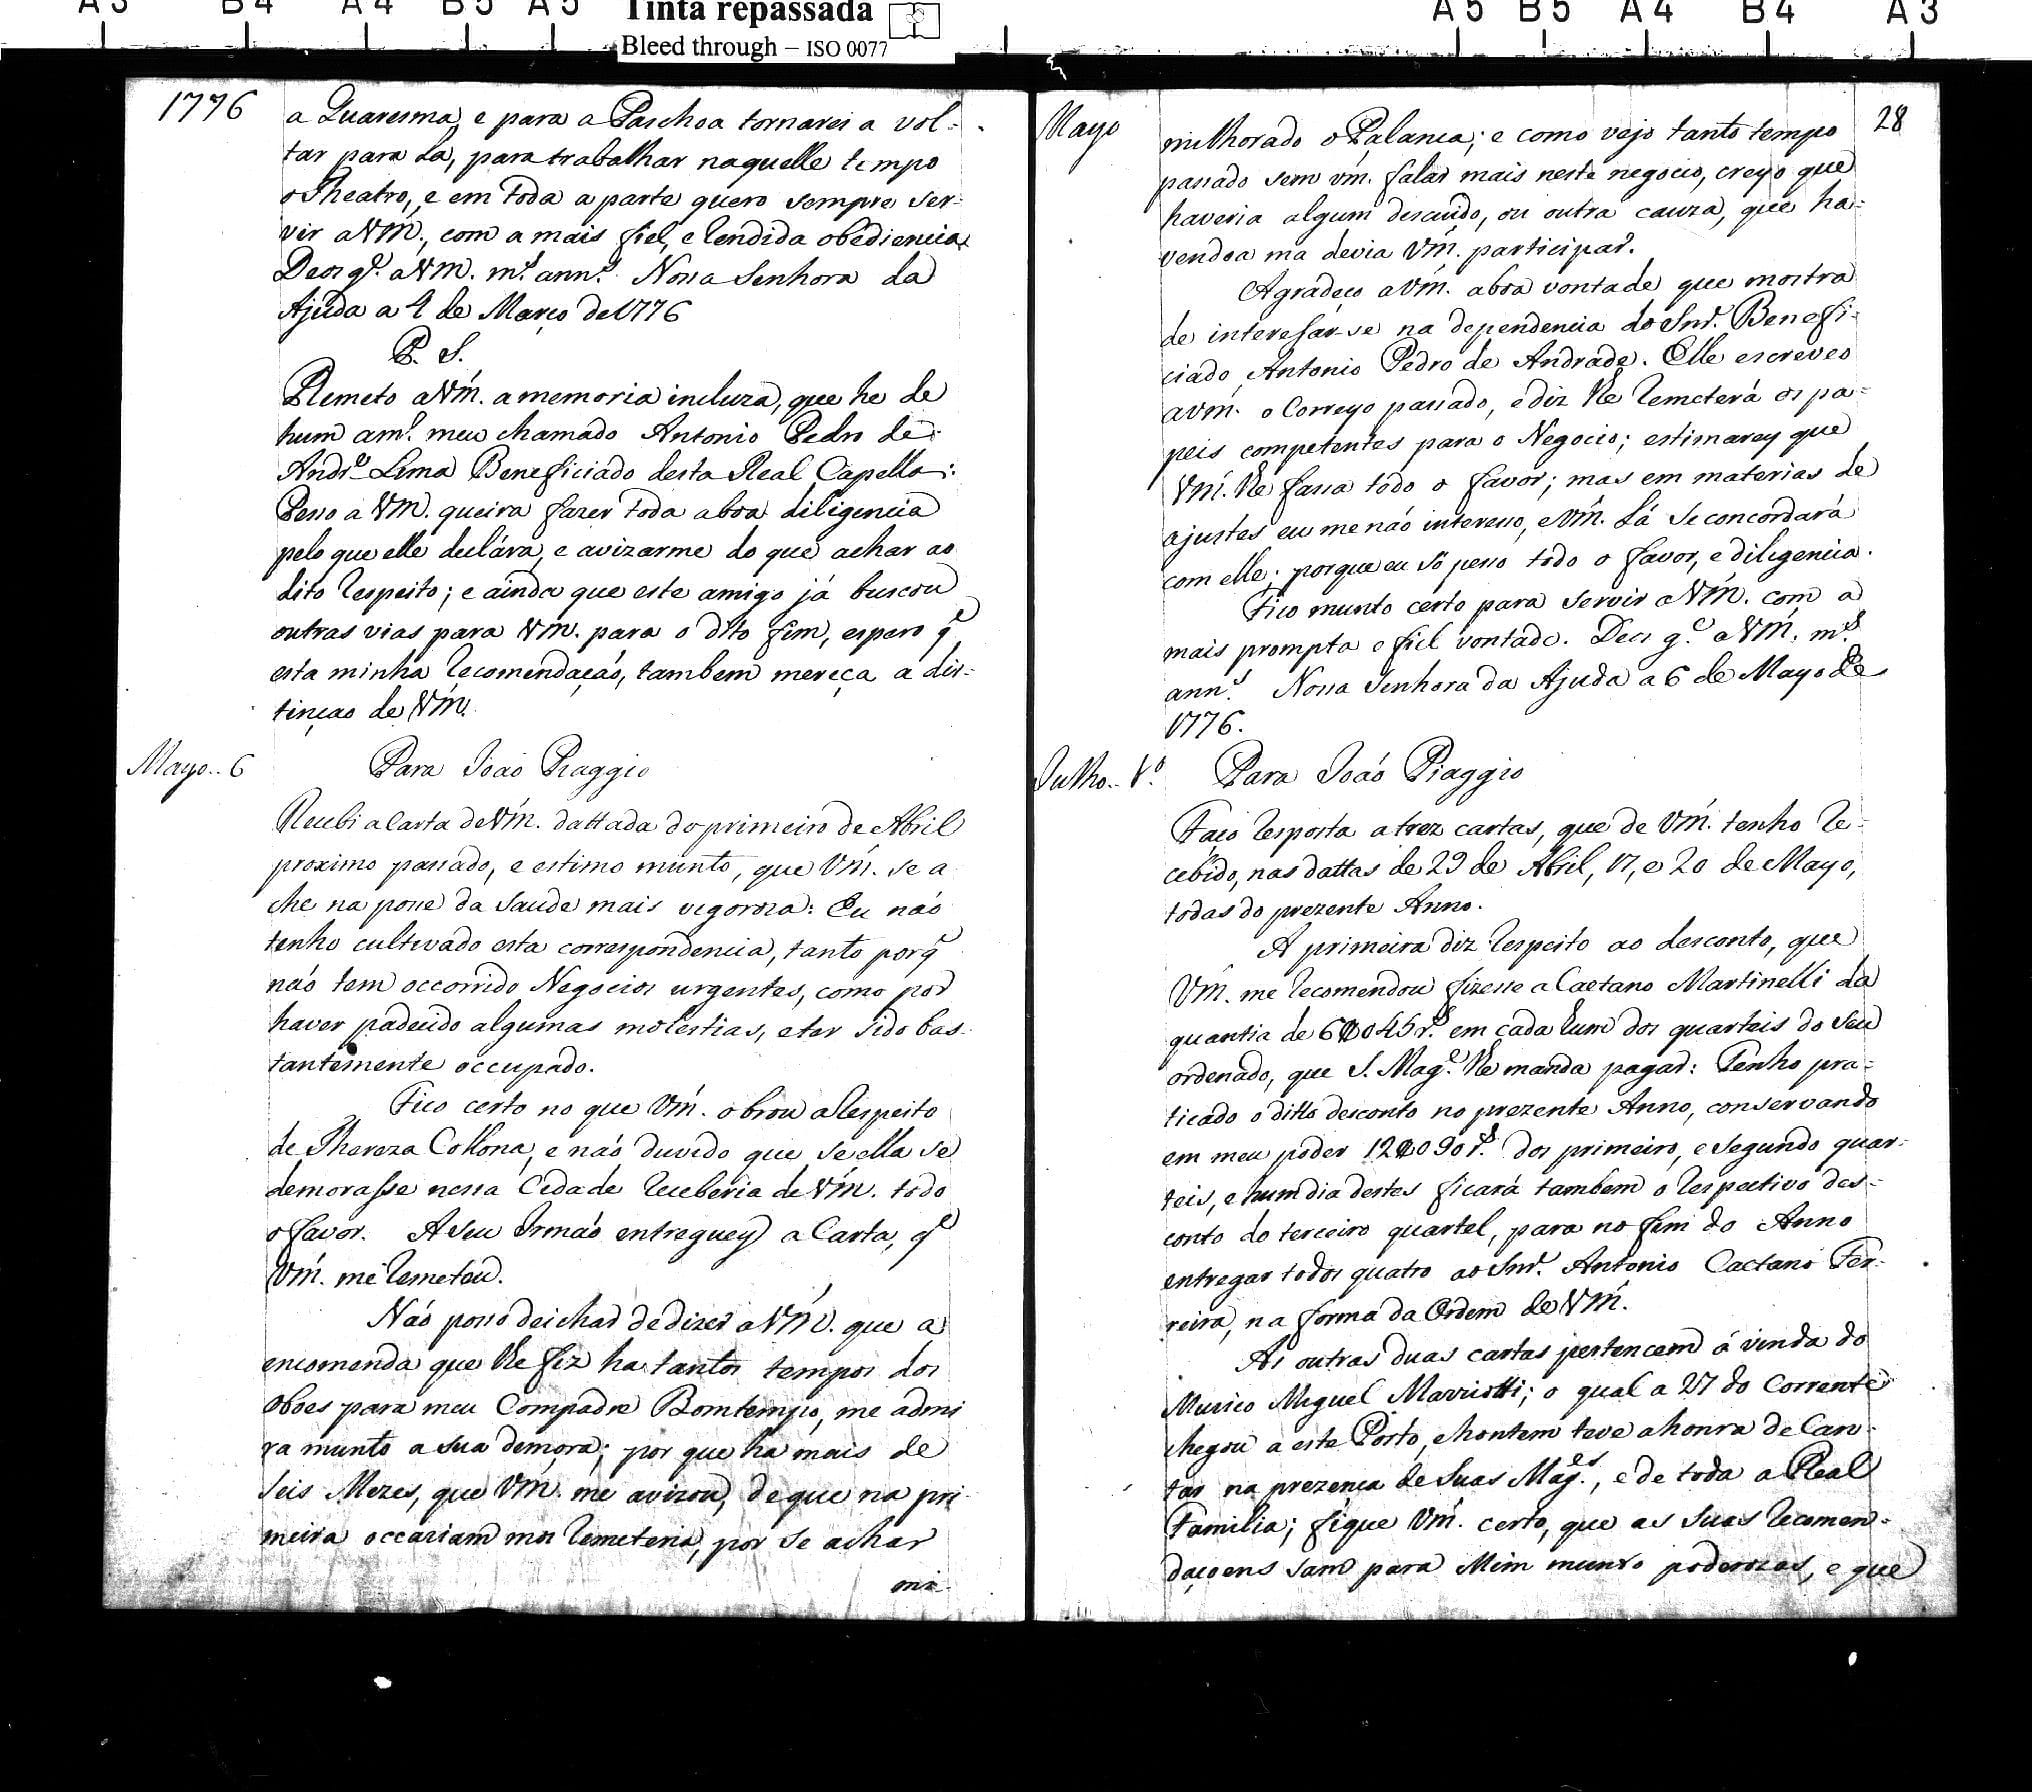 A3 B4 A4 B5 A5
Tinta repassada
Bleed through – ISO 0077
A5 B5 A4 B4 A3
1776
a Quaresma, e para a Paschoa tornarei a vol-
tar para Lá, para trabalhar naquelle tempo
o Theatro, e em toda a parte quero sempre ser-
vir a Vm., com a mais fiel, e rendida obediencia.
Deos g.e a Vm. m.s ann.s Nossa Senhora da
Ajuda a 4 de Março de 1776
P. S.
Remeto a Vm. a memoria incluza, que he de
hum am.o meu chamado Antonio Pedro de
Andr.e Lima Beneficiado desta Real Capella:
Peço a Vm. queira fazer toda a boa diligencia
pelo que elle declára, e avizarme do que achar ao
dito respeito; e ainda que este amigo já buscou
outras vias para Vm. para o dito fim, espero q
esta minha recomendação, tambem mereça a dis-
tinçao de Vm.
Mayo.. 6
Para João Piaggio
Recebi a Carta de Vm. dattada do primeiro de Abril
proximo passado, e estimo munto, que Vm. se a
che na posse da saude mais vigoroza: Eu não
tenho cultivado esta correspondencia, tanto porq
não tem occorrido Negocios urgentes, como por
haver padecido algumas molestias, e ter sido bas-
tantemente occupado.
Fico certo no que Vm. obrou a respeito
de Thereza Collona, e não duvido que se ella se
demorasse nessa Cidade receberia de Vm. todo
o favor. A seu Irmão entreguey a Carta, q
Vm. me remeteu.
Não posso deichar de dizer a Vm. que a
encomenda que lhe fiz ha tantos tempos dos
Oboes para meu Compadre Bomtempo, me admi
ra munto a sua demora; por que ha mais de
seis Mezes, que Vm. me avizou, de que na pri-
meira occaziam mos remeteria, por se achar
mi-
Mayo
28
milhorado o Palanca; e como vejo tanto tempo
passado sem vm. falar mais neste negocio, creyo que
haveria algum descuido, ou outra cauza, que ha-
vendoa ma devia Vm. participar.
Agradeço a Vm. a boa vontade que mostra
de interesar-se na dependencia do Snr. Benefi-
ciado Antonio Pedro de Andrade. Elle escreveo
a vm. o Correyo passado, e diz lhe remeterá os pa-
peis competentes para o Negocio; estimarey que
Vm. lhe fassa todo o favor; mas em materias de
ajustes eu me não interesso, e Vm. Lá se concordará
com elle; porque eu só peço todo o favor, e diligencia.
Fico munto certo para servir a Vm. com a
mais prompta e fiel vontade. Deos g.e a Vm. m.s
ann.s Nossa Senhora da Ajuda a 6 de Mayo de
1776.
Julho.. 1.o
Para João Piaggio
Faço resposta a trez cartas, que de Vm. tenho re-
cebido, nas dattas de 29 de Abril, 17, e 20 de Mayo,
todas do prezente Anno.
A primeira diz respeito ao desconto, que
Vm. me recomendou fizesse a Caetano Martinelli da
quantia de 6$045 r.s em cada hum dos quarteis do seu
ordenado, que S. Mag.e lhe manda pagar: Tenho pra-
ticado o ditto desconto no prezente Anno, conservando
em meu poder 12$090 r.s dos primeiro, e segundo quar-
teis, e hum dia destes ficará tambem o respectivo des-
conto do terceiro quartel, para no fim do Anno
entregar todos quatro ao Snr. Antonio Caetano Fer-
reira, na forma da Ordem de Vm.
As outras duas cartas pertencem á vinda do
Muzico Miguel Marriotti; o qual a 27 do Corrente
chegou a este Porto, e hontem teve a honra de Can-
tar na prezença de Suas Mag.es, e de toda a Real
Familia; fique Vm. certo, que as suas recomen-
daçoens sam para Mim munto poderozas, e que